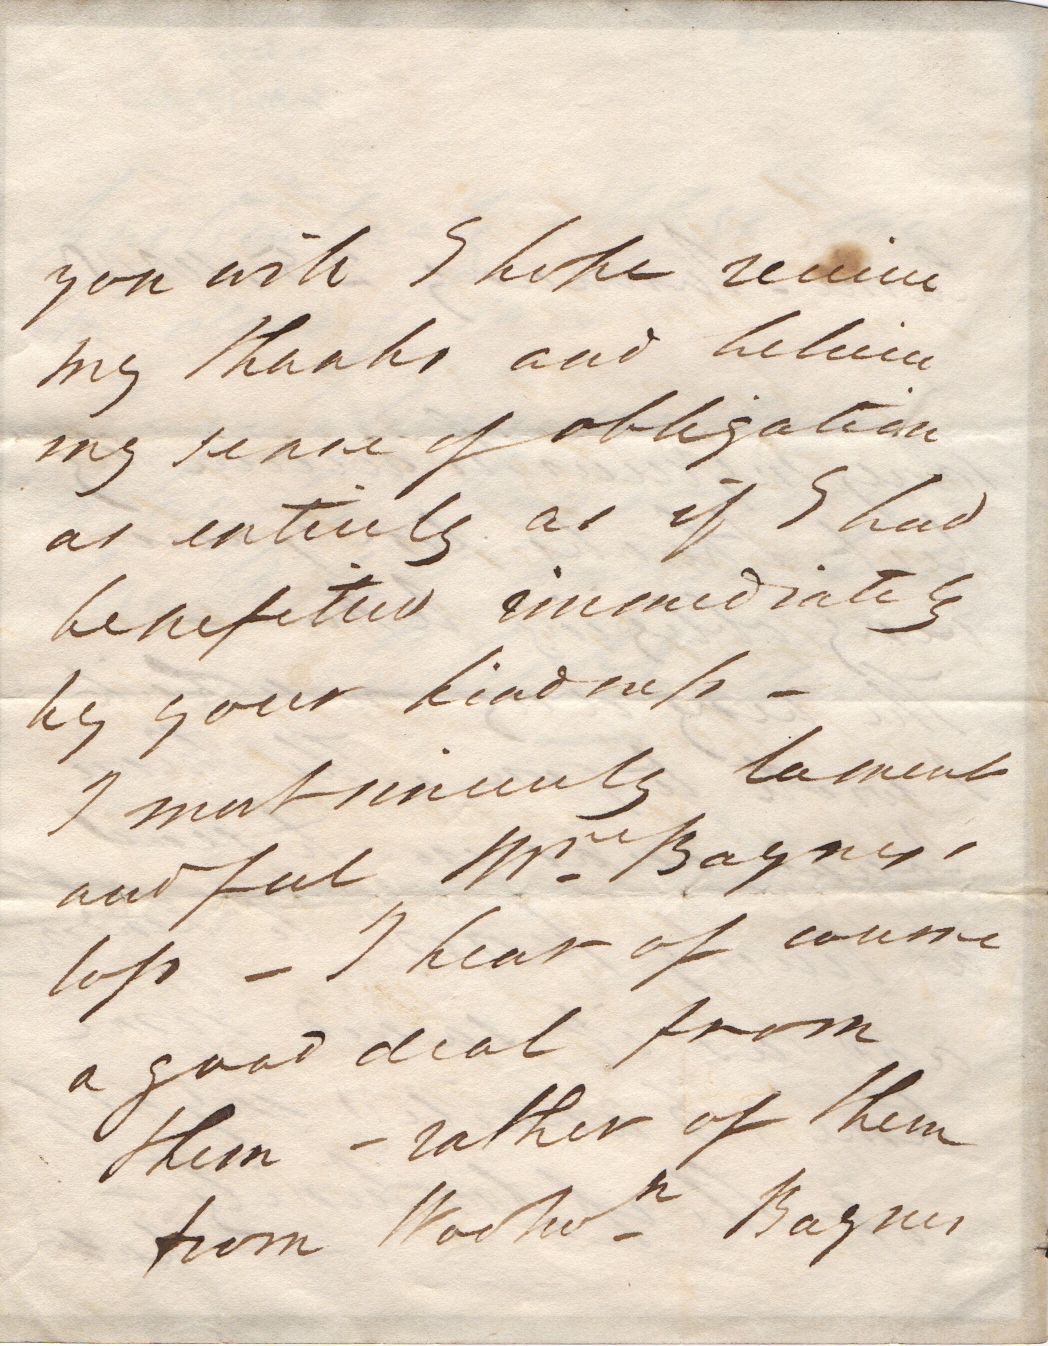 you with I hope receive
my thanks and believe
my sense of obligation
as entirely as if I had
benefitted immediately
by your kindness –
I most sincerely lament
and feel Mrs Baynes's
loss – I hear of course
a good deal from
them – rather of them
from Baynes